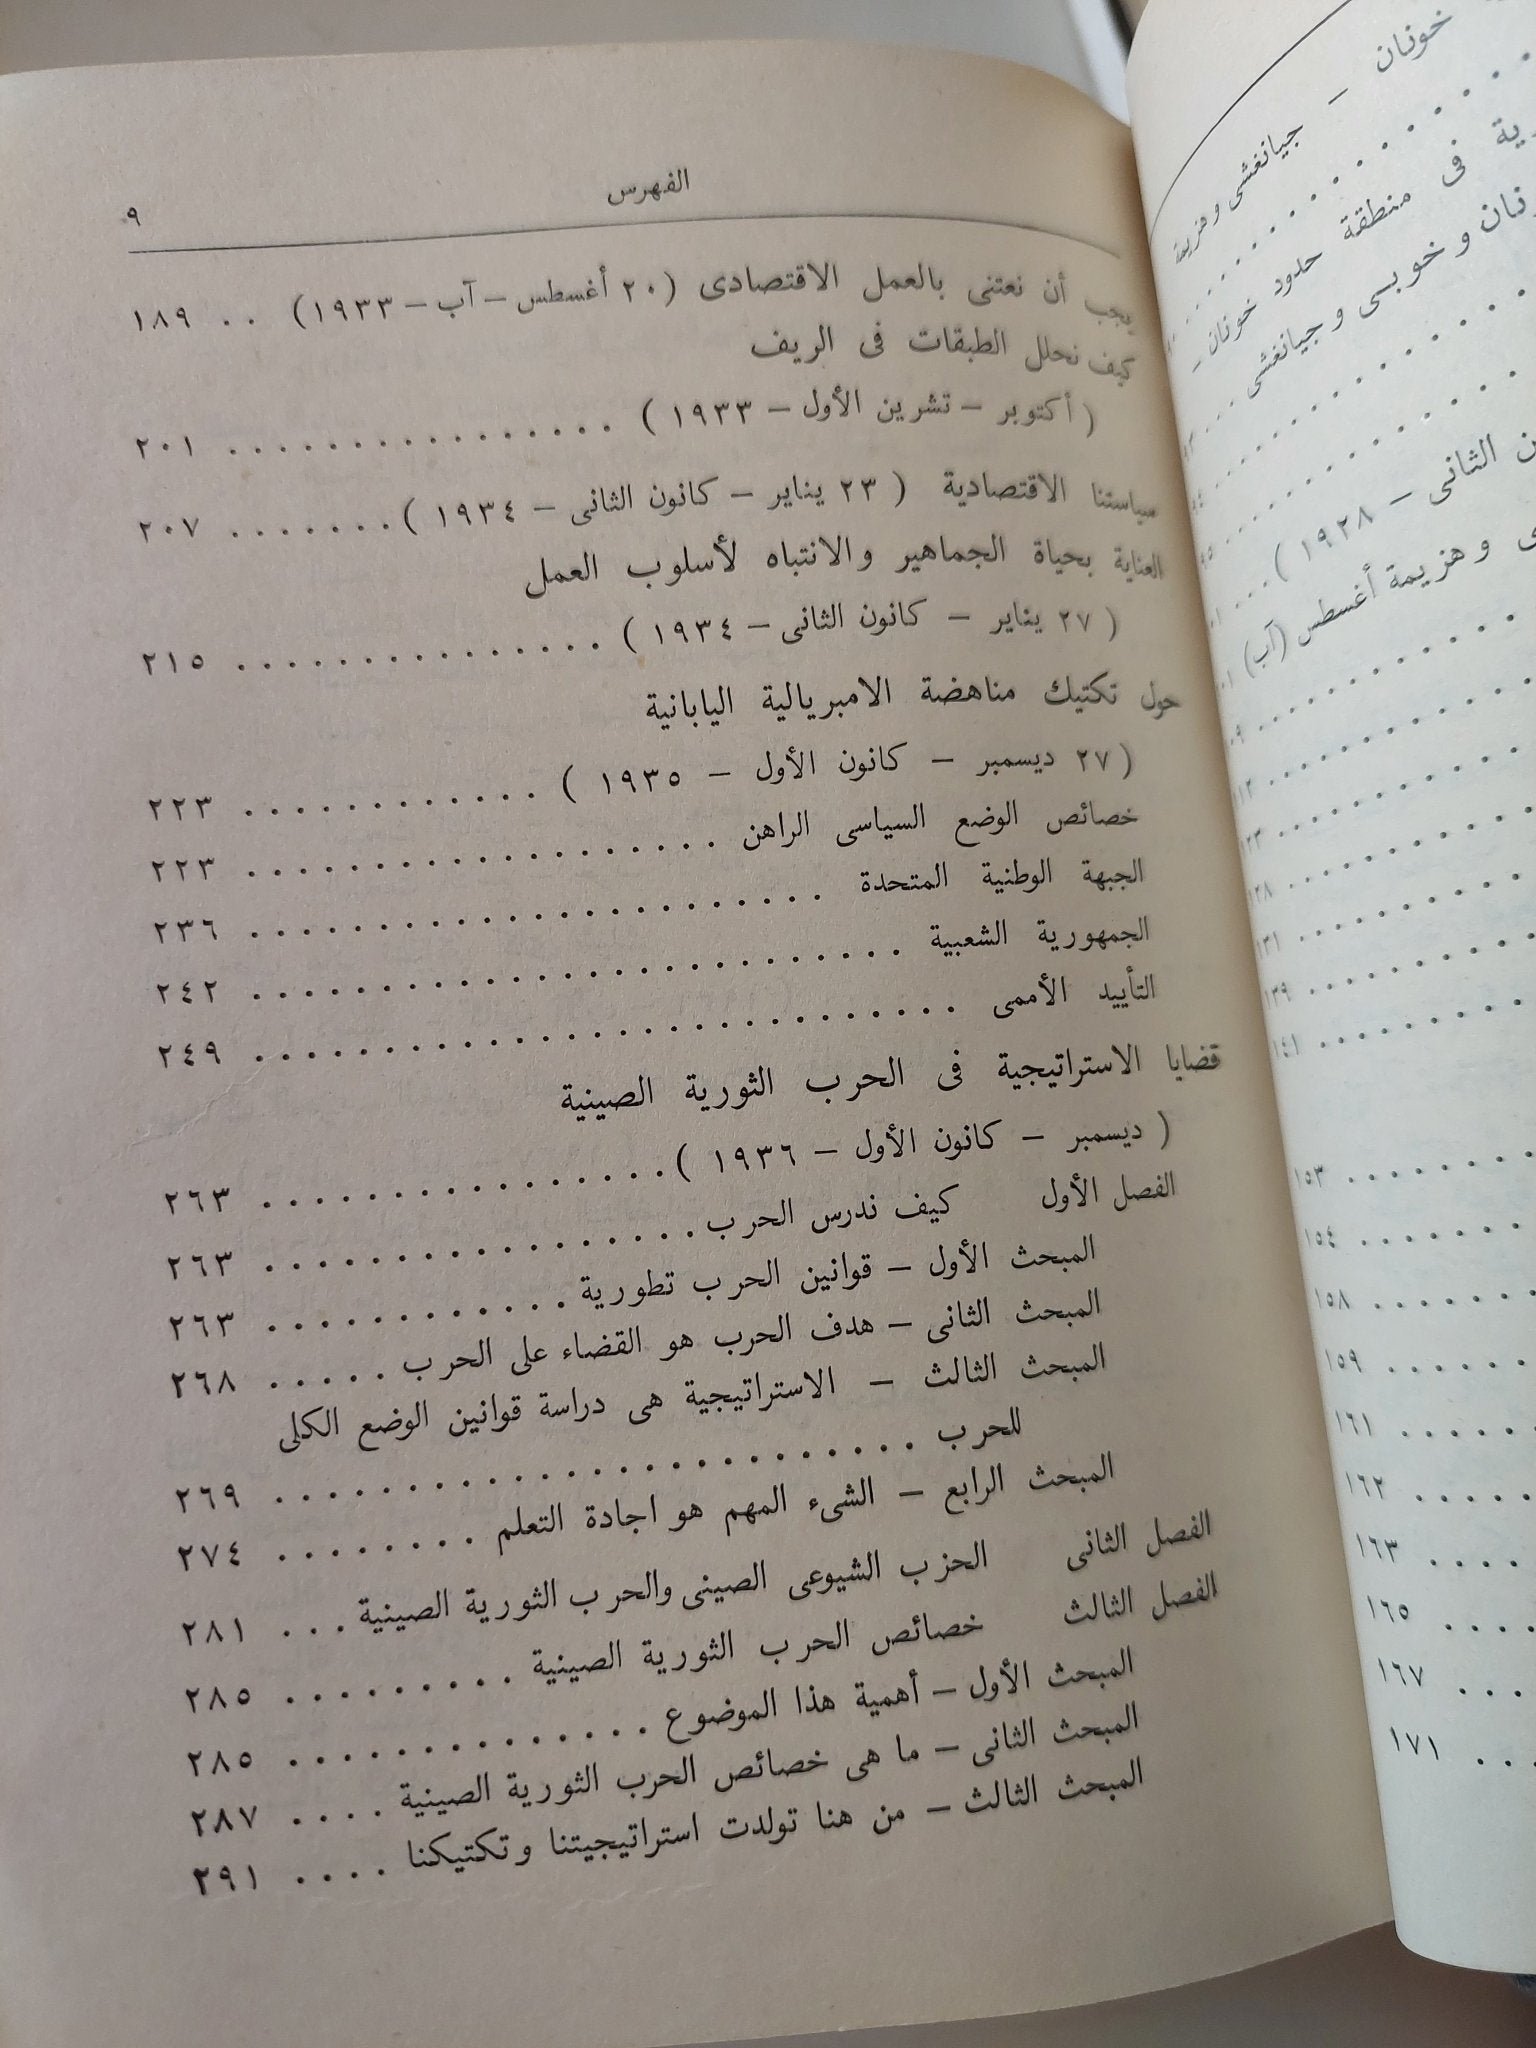 الفهرس ٩
يجب أن نعتنى بالعمل الاقتصادى (٢٠ أغسطس – آب – ١٩٣٣) . . ١٨٩
كيف نحلل الطبقات فى الريف
( أكتوبر – تشرين الأول – ١٩٣٣ ) . . . . . . . . . . . . . . . . ٢٠١
سياستنا الاقتصادية ( ٢٣ يناير – كانون الثانى – ١٩٣٤ ) . . . . . . . ٢٠٧
العناية بحياة الجماهير والانتباه لأسلوب العمل
( ٢٧ يناير – كانون الثانى – ١٩٣٤ ) . . . . . . . . . . . . . . ٢١٥
حول تكتيك مناهضة الامبريالية اليابانية
( ٢٧ ديسمبر – كانون الأول – ١٩٣٥ ) . . . . . . . . . . . . ٢٢٣
خصائص الوضع السياسى الراهن . . . . . . . . . . . . . . . . . . ٢٢٣
الجبهة الوطنية المتحدة . . . . . . . . . . . . . . . . . . . . . . ٢٣٦
الجمهورية الشعبية . . . . . . . . . . . . . . . . . . . . . . . . . ٢٤٢
التأييد الأممى . . . . . . . . . . . . . . . . . . . . . . . . . . . ٢٤٩
قضايا الاستراتيجية فى الحرب الثورية الصينية
( ديسمبر – كانون الأول – ١٩٣٦ ) . . . . . . . . . . . . . . . . ٢٦٣
الفصل الأول كيف ندرس الحرب . . . . . . . . . . . . . . . . . ٢٦٣
المبحث الأول – قوانين الحرب تطورية . . . . . . . . . . . . ٢٦٣
المبحث الثانى – هدف الحرب هو القضاء على الحرب . . . . . ٢٦٨
المبحث الثالث – الاستراتيجية هى دراسة قوانين الوضع الكلى
للحرب . . . . . . . . . . . . . . . . . . . . . . . . . ٢٦٩
المبحث الرابع – الشىء المهم هو اجادة التعلم . . . . . . . . ٢٧٤
الفصل الثانى الحزب الشيوعى الصينى والحرب الثورية الصينية . . . ٢٨١
الفصل الثالث خصائص الحرب الثورية الصينية . . . . . . . . . ٢٨٥
المبحث الأول – أهمية هذا الموضوع . . . . . . . . . . . . . . ٢٨٥
المبحث الثانى – ما هى خصائص الحرب الثورية الصينية . . . . ٢٨٧
المبحث الثالث – من هنا تولدت استراتيجيتنا وتكتيكنا . . . . ٢٩١
خونان – جيانغشى وهزيمة
فى منطقة حدود خونان –
وخوبسى وجيانغشى
الثانى – ١٩٢٨ ) . . .
وهزيمة أغسطس (آب)
١٣٩
١٤١
١٥٣
١٥٤
١٥٨
١٥٩
١٦١
١٦٢
١٦٣
١٦٥
١٦٧
١٧١